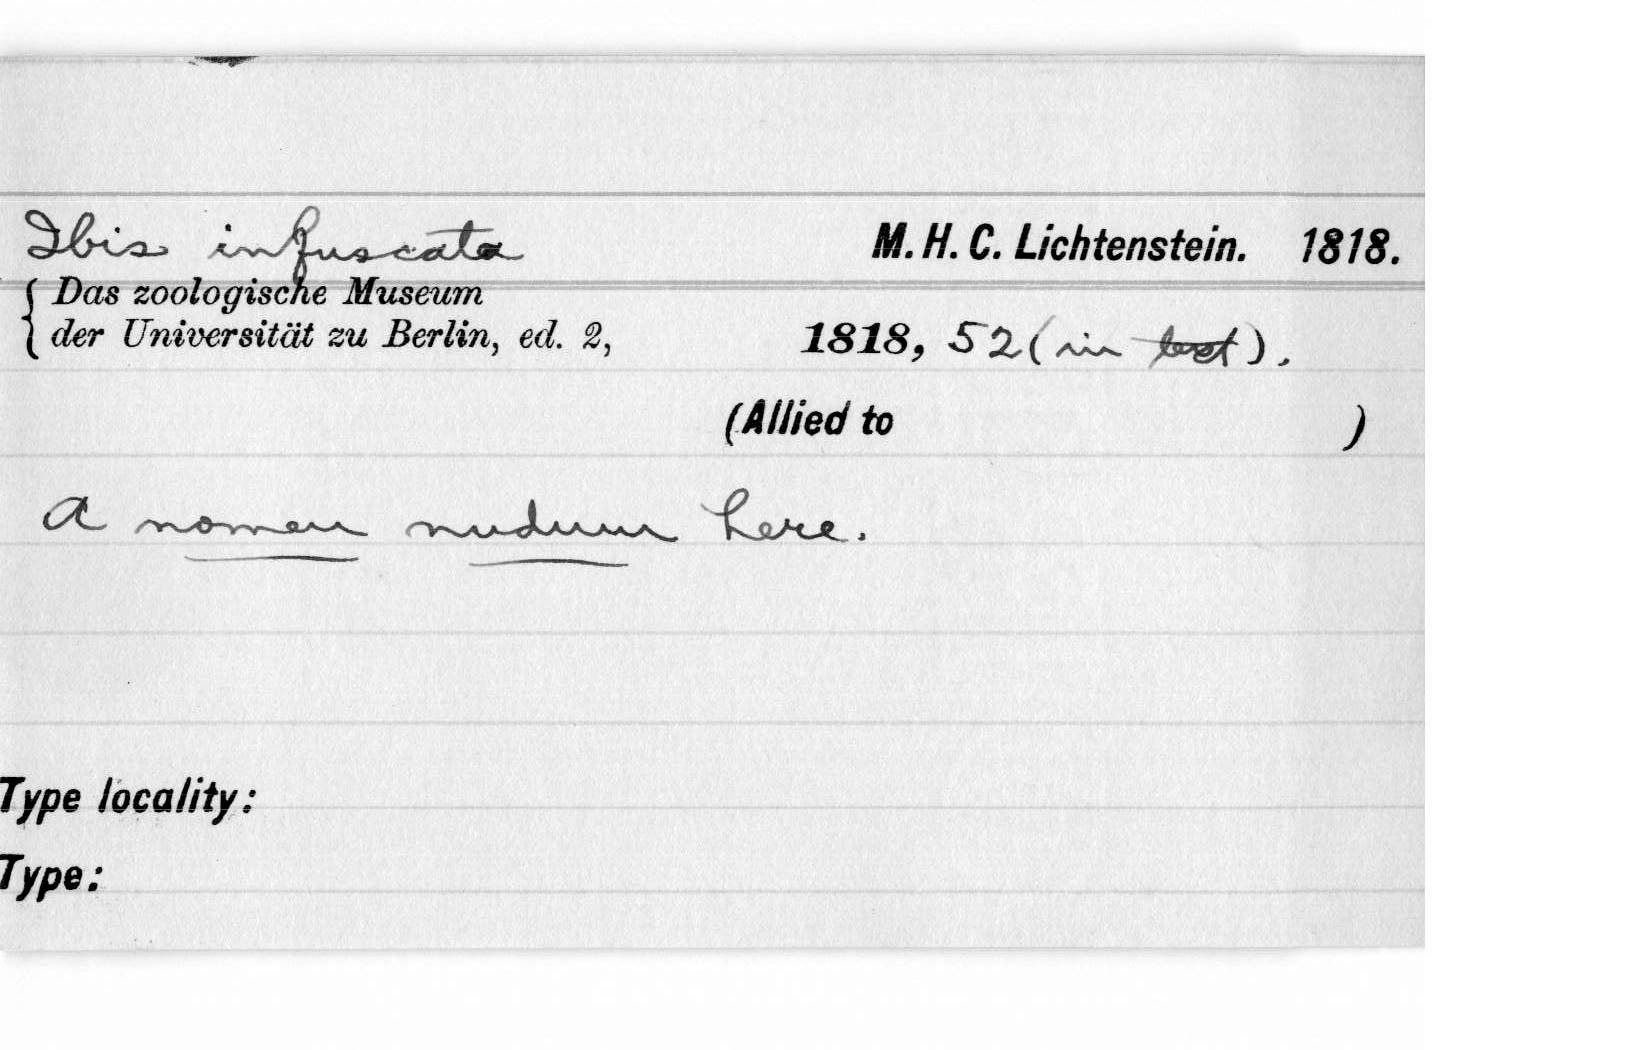 Ibis infuscata M. H. C. Lichtenstein. 1818.
{ Das zoologische Museum
der Universität zu Berlin, ed. 2, 1818, 52 (in text).
(Allied to )
A nomen nudum here.
Type locality:
Type: